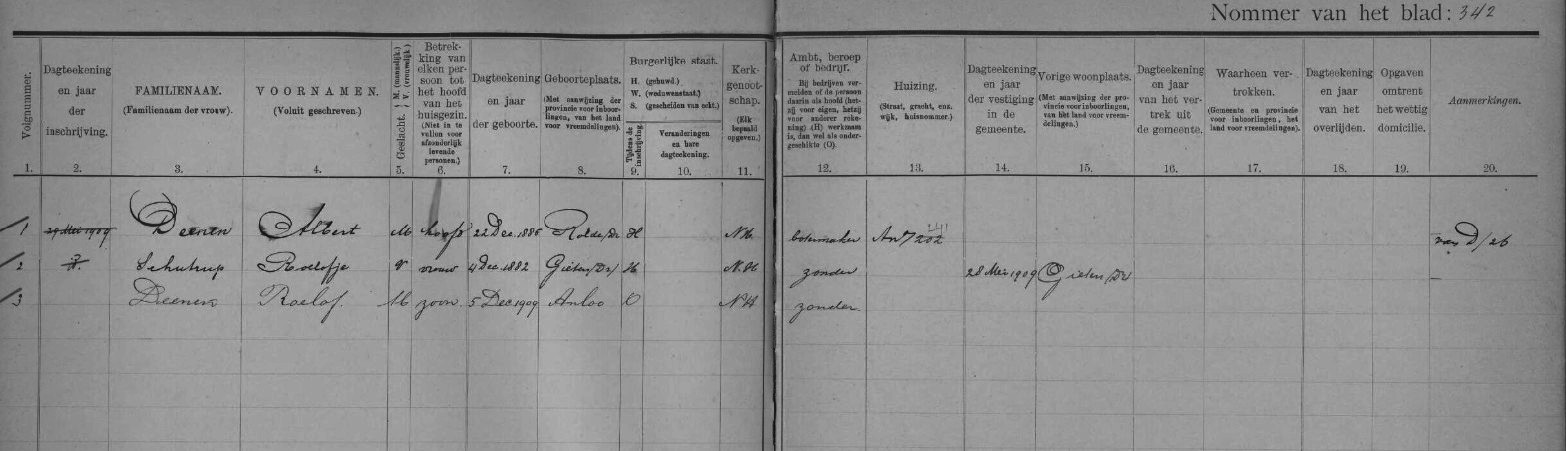 Nommer van het blad: 342
Volgnummer.
Dagteekening en jaar der inschrijving.
FAMILIENAAM.
(Familienaam der vrouw).
VOORNAMEN.
(Voluit geschreven.)
Geslacht. M. (mannelijk.) V. (vrouwelijk.)
Betrekking van elken persoon tot het hoofd van het huisgezin.
(Niet in te vullen voor afzonderlijk levende personen.)
Dagteekening en jaar der geboorte.
Geboorteplaats.
(Met aanwijzing der provincie voor inboorlingen, van het land voor vreemdelingen).
Burgerlijke staat.
H. (gehuwd.)
W. (weduwenstaat.)
S. (gescheiden van echt.)
Tijdens de inschrijving.
Veranderingen en hare dagteekening.
Kerkgenootschap.
(Elk bepaald opgeven.)
Ambt, beroep of bedrijf.
Bij bedrijven vermelden of de persoon daarin als hoofd (hetzij voor eigen, hetzij voor anderer rekening) (H) werkzaam is, dan wel als ondergeschikte (O).
Huizing.
(Straat, gracht, enz. wijk, huisnommer.)
Dagteekening en jaar der vestiging in de gemeente.
Vorige woonplaats.
(Met aanwijzing der provincie voor inboorlingen, van het land voor vreemdelingen.)
Dagteekening en jaar van het vertrek uit de gemeente.
Waarheen vertrokken.
(Gemeente en provincie voor inboorlingen, het land voor vreemdelingen).
Dagteekening en jaar van het overlijden.
Opgaven omtrent het wettig domicilie.
Aanmerkingen.
1. 2. 3. 4. 5. 6. 7. 8. 9. 10. 11. 12. 13. 14. 15. 16. 17. 18. 19. 20.
1 29 Mei 1909 Deenen Albert M hoofd 22 Dec. 1886 Rolde/Dr H NH botermaker An 7 202 241 van D/26
2 Schutrup Roelofje V vrouw 4 Dec. 1882 Gieten/Dr/ H N.H zonder 28 Mei 1909 Gieten/Dr
3 Deenen Roelof. M zoon. 5 Dec 1909 Anloo O NH zonder.